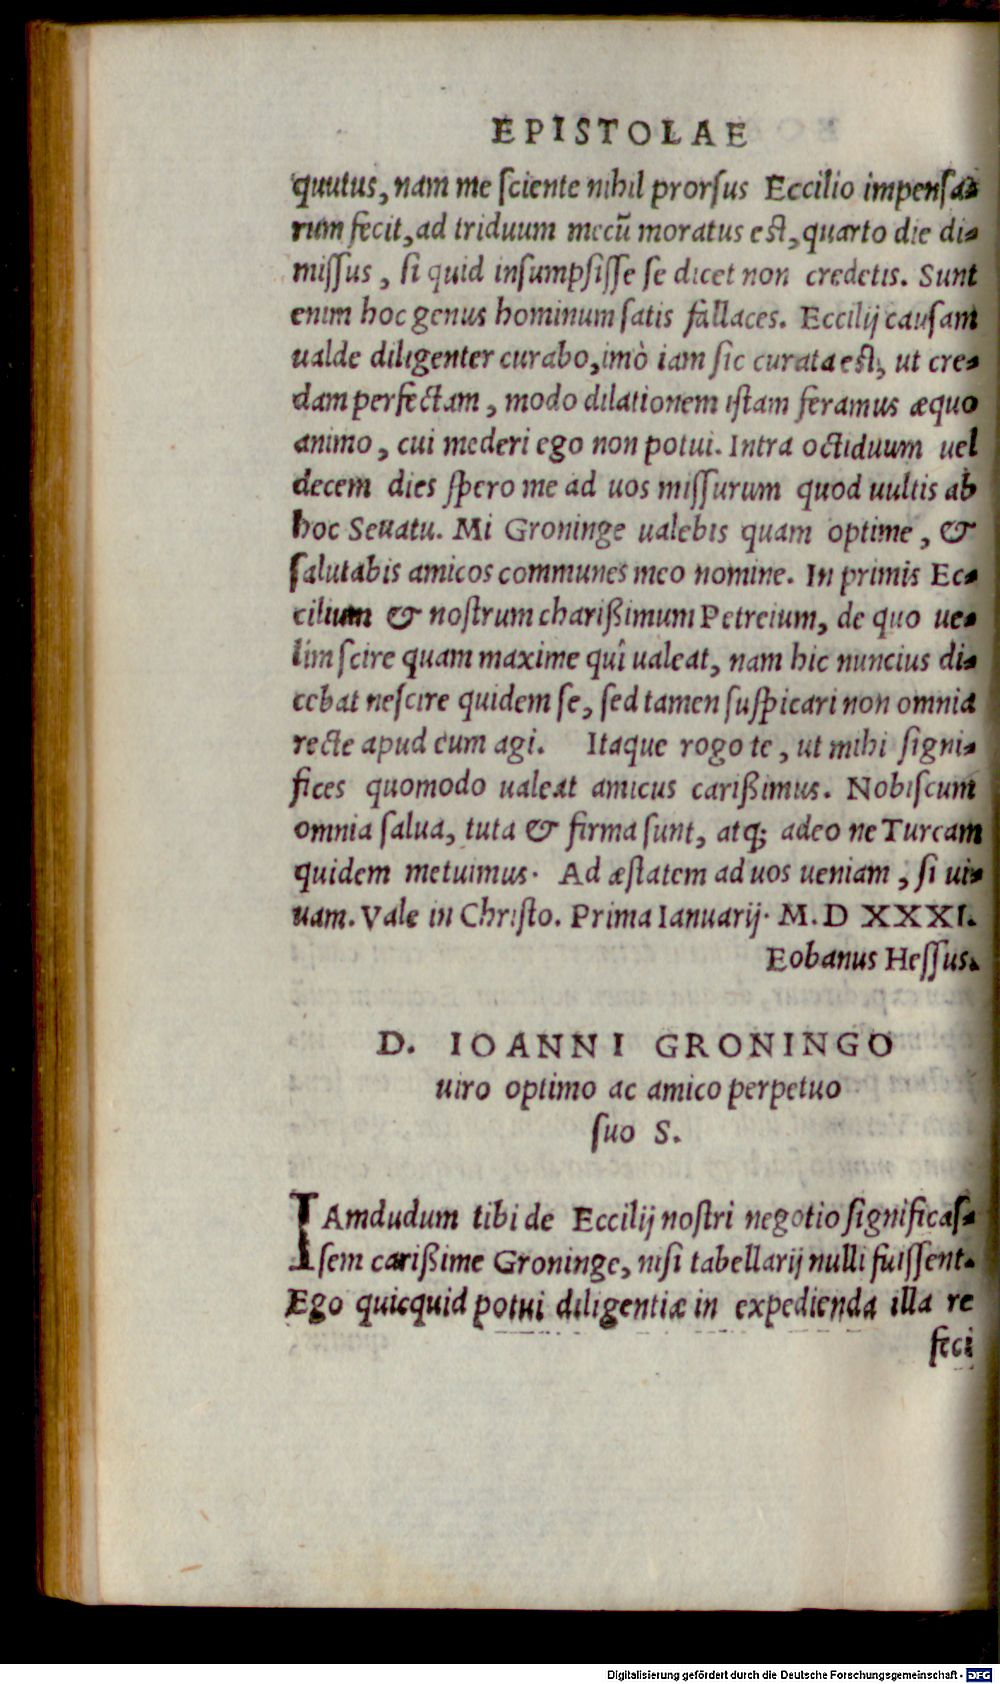 EPISTOLAE
quutus, nam me sciente nihil prorsus Eccilio impensa-
rum fecit, ad triduum mecū moratus est, quarto die di-
missus, si quid insumpsisse se dicet non credetis. Sunt
enim hoc genus hominum satis fallaces. Eccilij causam
ualde diligenter curabo, imò iam sic curata est, ut cre-
dam perfectam, modo dilationem istam feramus æquo
animo, cui mederi ego non potui. Intra octiduum uel
decem dies spero me ad uos missurum quod uultis ab
hoc Seuatu. Mi Groninge ualebis quam optime, &
salutabis amicos communes meo nomine. In primis Ec-
cilium & nostrum charißimum Petreium, de quo ue-
lim scire quam maxime quî ualeat, nam hic nuncius di-
cebat nescire quidem se, sed tamen suspicari non omnia
recte apud eum agi. Itaque rogo te, ut mihi signi-
fices quomodo ualeat amicus carißimus. Nobiscum
omnia salua, tuta & firma sunt, atq; adeo ne Turcam
quidem metuimus. Ad æstatem ad uos ueniam, si ui-
uam. Vale in Christo. Prima Ianuarij. M. D XXXI.
Eobanus Hessus.
D. IOANNI GRONINGO
uiro optimo ac amico perpetuo
suo S.
IAmdudum tibi de Eccilij nostri negotio significas-
sem carißime Groninge, nisi tabellarij nulli fuissent.
Ego quicquid potui diligentiæ in expedienda illa re
feci
Digitalisierung gefördert durch die Deutsche Forschungsgemeinschaft - DFG